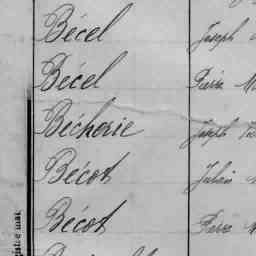 Bécel Joseph
Bécel Pierre M
Bécherie Joseph
Bécot Julien
Bécot Pierre M